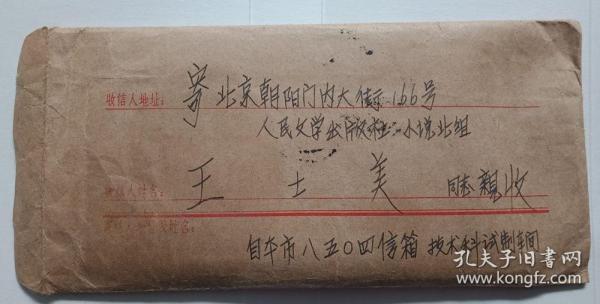 收信人地址：寄北京朝阳门内大街166号
人民文学出版社小说北组
收信人姓名：王士美 同志 亲收
自本市八五〇四信箱 技术科试制车间
孔夫子旧书网
kongfz.com